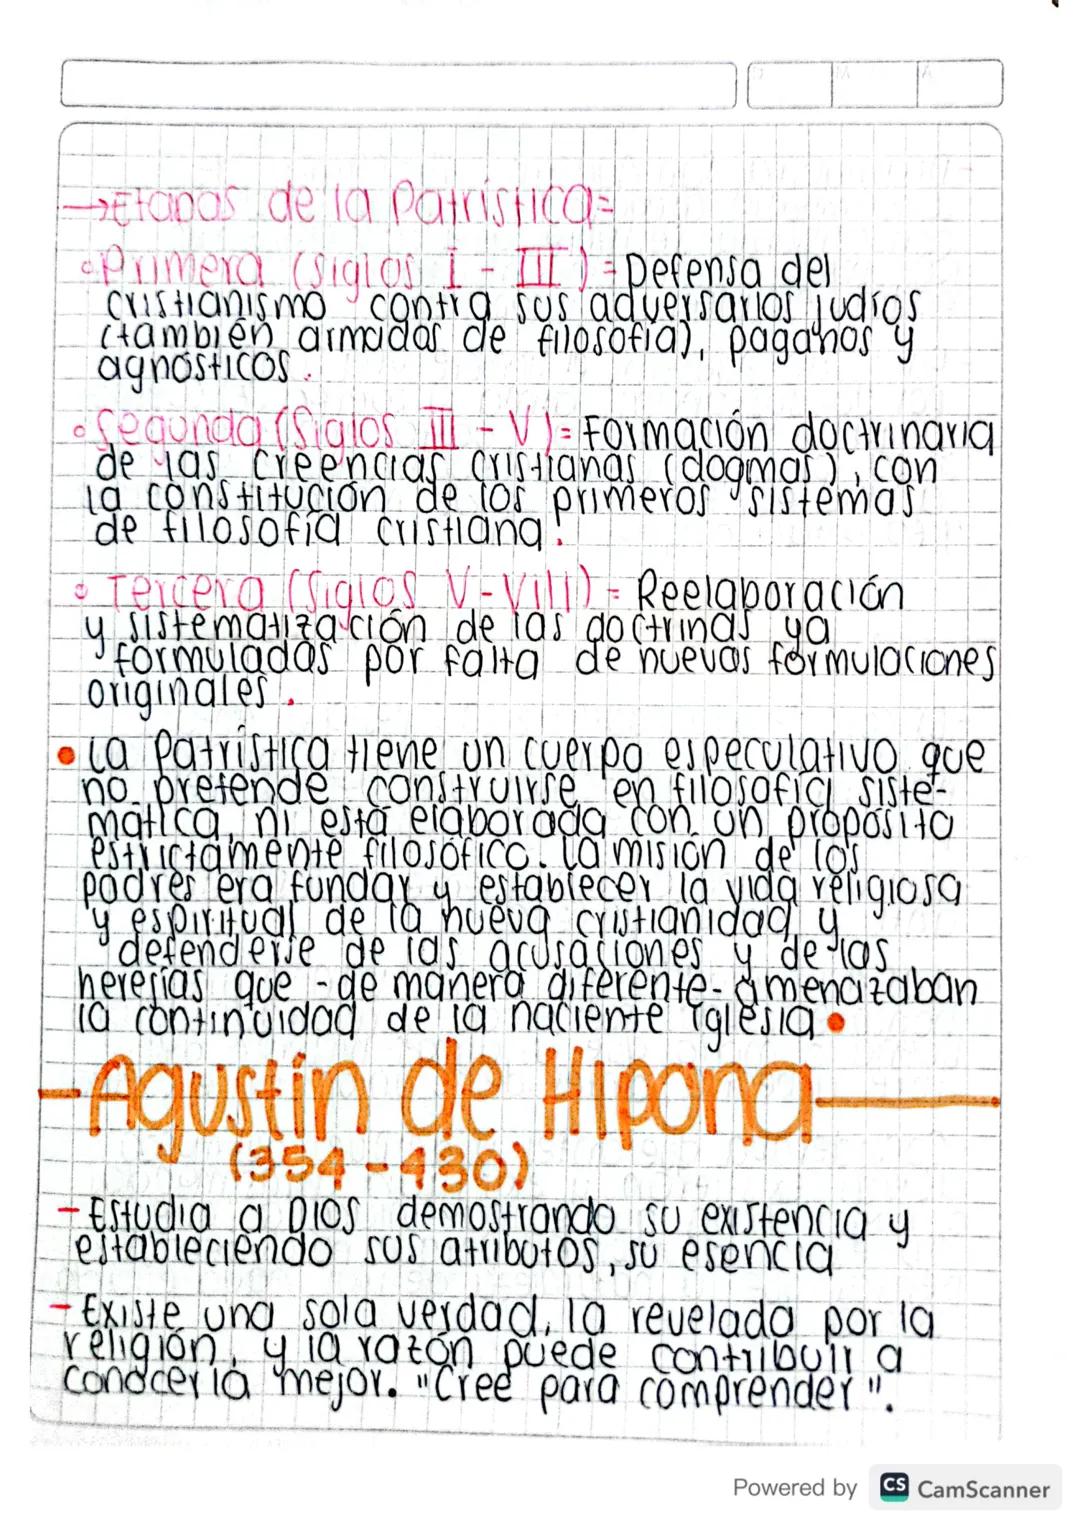 →Etapas de la Patrística=
Primera (Siglos I - III) = Defensa del
cristianismo contra sus adversarios judíos
(también armados de filosofía), paganos y
agnósticos.
Segunda (Siglos III - V) = Formación doctrinaria
de las creencias cristianas (dogmas), con
la constitución de los primeros sistemas
de filosofía cristiana.
Tercera (Siglos V-VIII) = Reelaboración
y sistematización de las doctrinas ya
formuladas por falta de nuevas formulaciones
originales.
• La Patrística tiene un cuerpo especulativo que
no pretende construirse en filosofía siste-
mática, ni está elaborada con un propósito
estrictamente filosófico. La misión de los
padres era fundar y establecer la vida religiosa
y espiritual de la nueva cristianidad y
defenderse de las acusaciones y de las
herejías que -de manera diferente- amenazaban
la continuidad de la naciente iglesia •
Agustín de Hipona
(354-430)
- Estudia a Dios demostrando su existencia y
estableciendo sus atributos, su esencia
- Existe una sola verdad, la revelada por la
religión, y la razón puede contribuir a
conocerla mejor. "Cree para comprender".
Powered by CS CamScanner